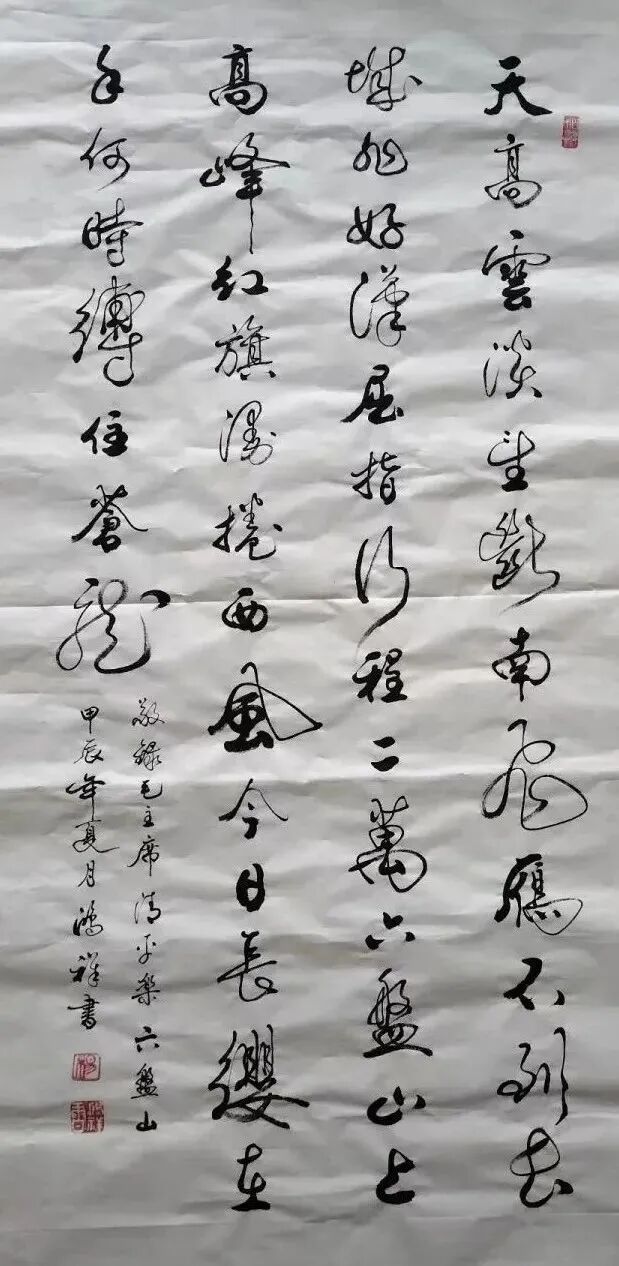 天高雲淡望斷南飛鴈不到長
城非好漢屈指行程二萬六盤山上
高峰紅旗漫捲西風今日長纓在
手何時縛住蒼龍
敬錄毛主席清平樂六盤山
甲辰年夏月鴻祥書